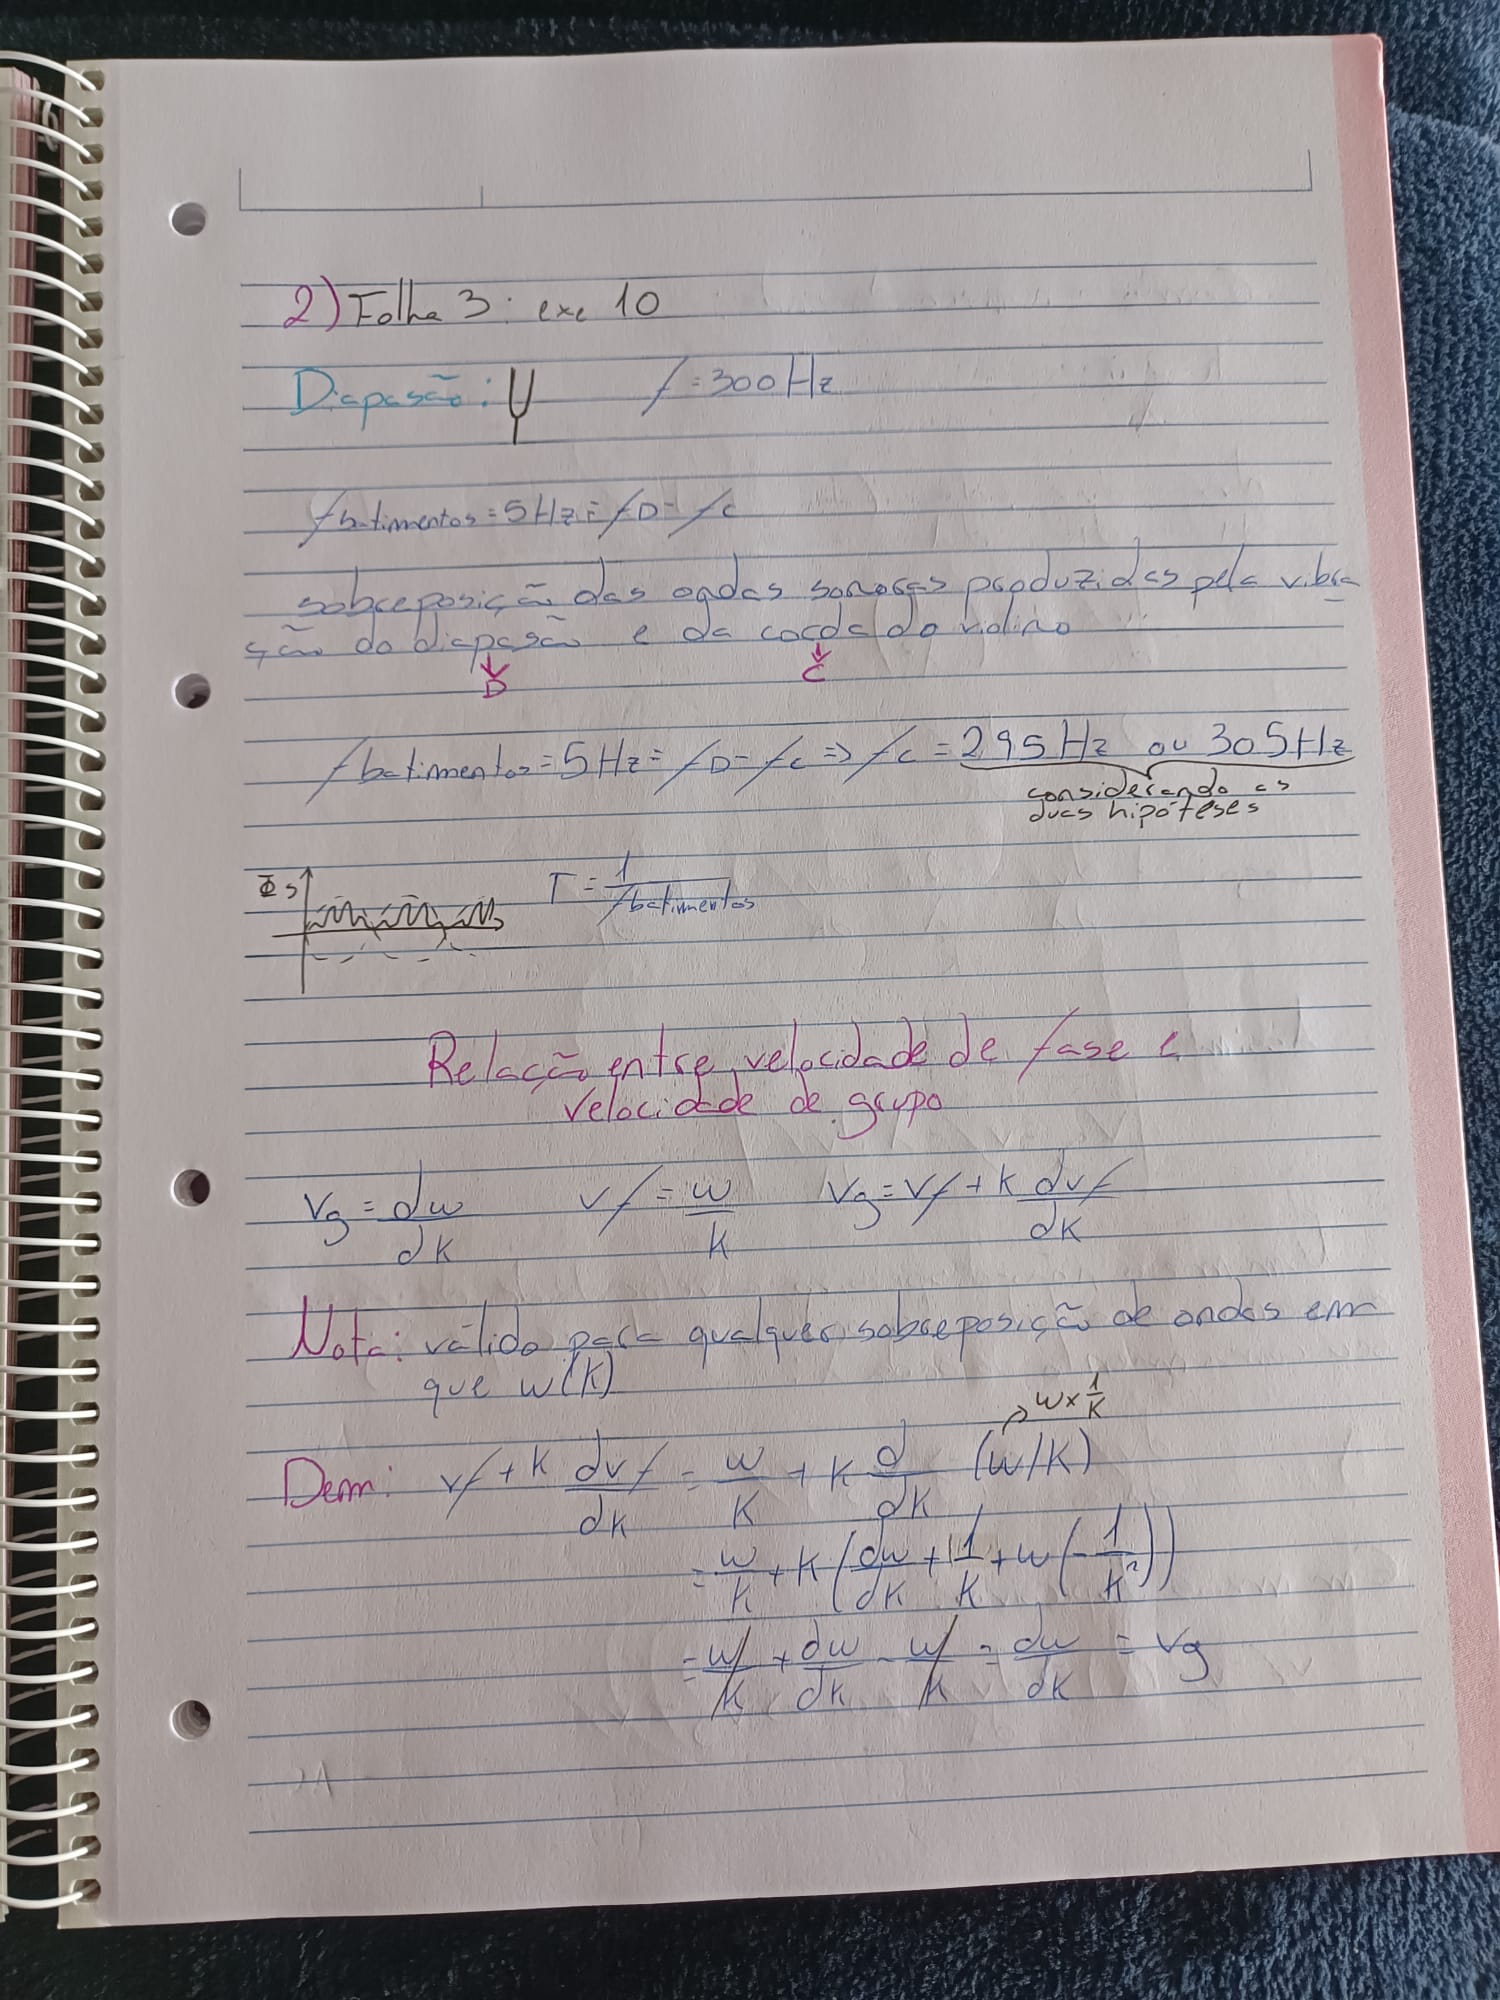 2) Folha 3: exe 10
Diapasão: f = 300 Hz
f batimentos = 5 Hz = fD - fC
sobreposição das ondas sonoras produzidas pela vibra-
ção do diapasão e da corda do violino
D C
f batimentos = 5 Hz = fD - fC => fC = 295 Hz ou 305 Hz
considerando as
duas hipóteses
Φs T = 1/f batimentos
Relação entre velocidade de fase e
velocidade de grupo
Vg = dw/dk vf = w/k Vg = vf + k dvf/dk
Nota: válido para qualquer sobreposição de ondas em
que w(k)
w × 1/k
Dem: vf + k dvf/dk = w/k + k d/dk (w/k)
= w/k + k (dw/dk + 1/k + w(-1/k²))
= w/k + dw/dk - w/k = dw/dk = vg